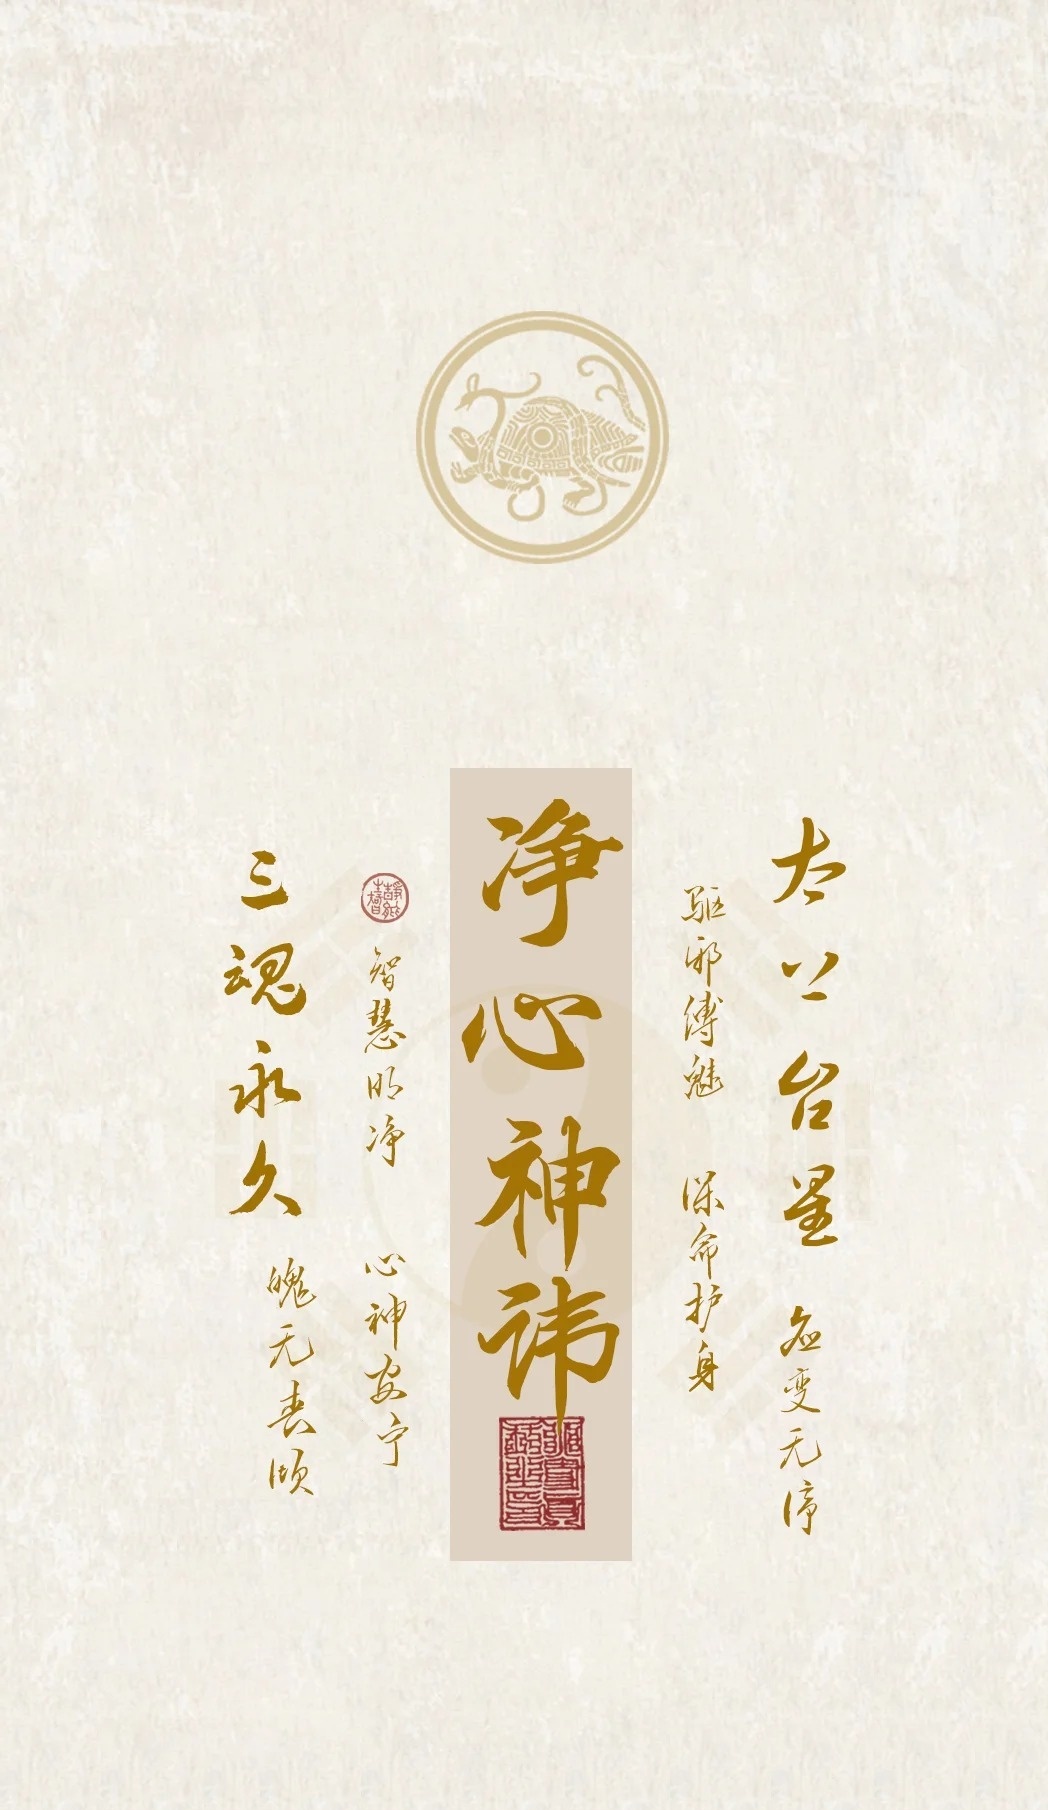 太上台星 应变无停
驱邪缚魅 保命护身
净心神讳
智慧明净 心神安宁
三魂永久 魄无丧倾